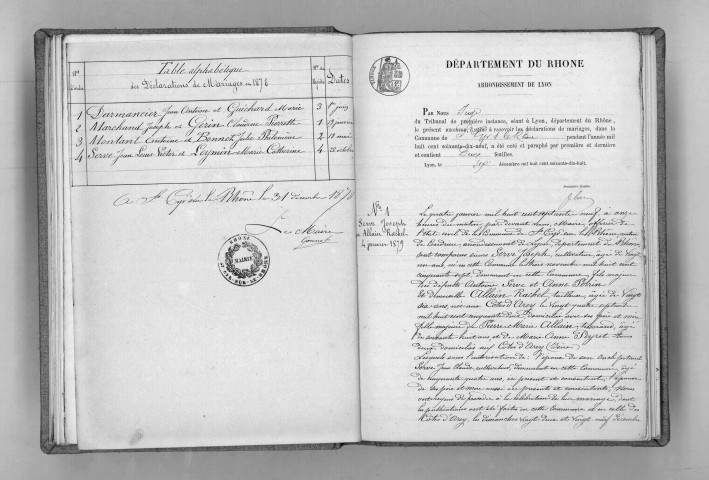 Table alphabétique
des Déclarations de Mariages en 1878
Nos
Nos du Registre
Dates
1 Darmancier Jean Antoine et Guichard Marie 3 1er juin
2 Marchand Joseph et Gerin Claudine Pierrette 1 19 janvier
3 Montant Antoine et Bonnet Julie Philomène 2 18 mai
4 Serve Jean Louis Victor et Leynier Marie Catherine 4 26 octobre
A St Cyr sur le Rhône le 31 décembre 1878
Le Maire
Gonnet
RHONE
MAIRIE
ST CYR-SUR-LE-RHONE
DÉPARTEMENT DU RHONE
ARRONDISSEMENT DE LYON
PAR NOUS Juge
du Tribunal de première instance, séant à Lyon, département du Rhône,
le présent REGISTRE, destiné à recevoir les déclarations de mariages, dans la
Commune de St Cyr s. le Rhône pendant l'année mil
huit cent soixante-dix-neuf, a été coté et paraphé par première et dernière
et contient Deux feuilles.
Lyon, le dix décembre mil huit cent soixante-dix-huit.
Première feuille.
No 1
Serve Joseph
et Allain Rachel
4 janvier 1879
Le quatre janvier mil huit cent septante neuf à onze
heures du matin par devant nous, Maire, officier de
l'état civil de la Commune de St Cyr sur le Rhône, canton
de Condrieu, arrondissement de Lyon, Département du Rhône
sont comparus sieurs Serve Joseph, cultivateur, âgé de vingt
un ans, né en cette Commune le novembre mil huit cent
cinquante sept, demeurant en cette commune, fils majeur
des défunts Antoine Serve et Anne Perrin
Et demoiselle Allain Rachel, tailleuse, âgée de vingt
six ans, née aux Côtes d'Arey le vingt quatre septembre
mil huit cent cinquante deux domiciliée avec ses père et mère
fille majeure de Pierre Marie Allain, tisserand, âgé
de soixante huit ans et de Marie Anne Peyret tous
deux domiciliés aux Côtes d'Arey (Isère)
Lesquels sous l'autorisation de : l'époux de son oncle paternel
Serve Jean Claude, cultivateur, demeurant en cette Commune, âgé
de cinquante quatre ans, ici présent et consentant, l'épouse
de ses père et mère aussi ici présents et consentants, Nous
ont requis de procéder à la célébration de leur mariage, dont
les publications ont été faites en cette Commune et en celle des
Côtes d'Arey, les dimanches vingt deux et vingt neuf décembre